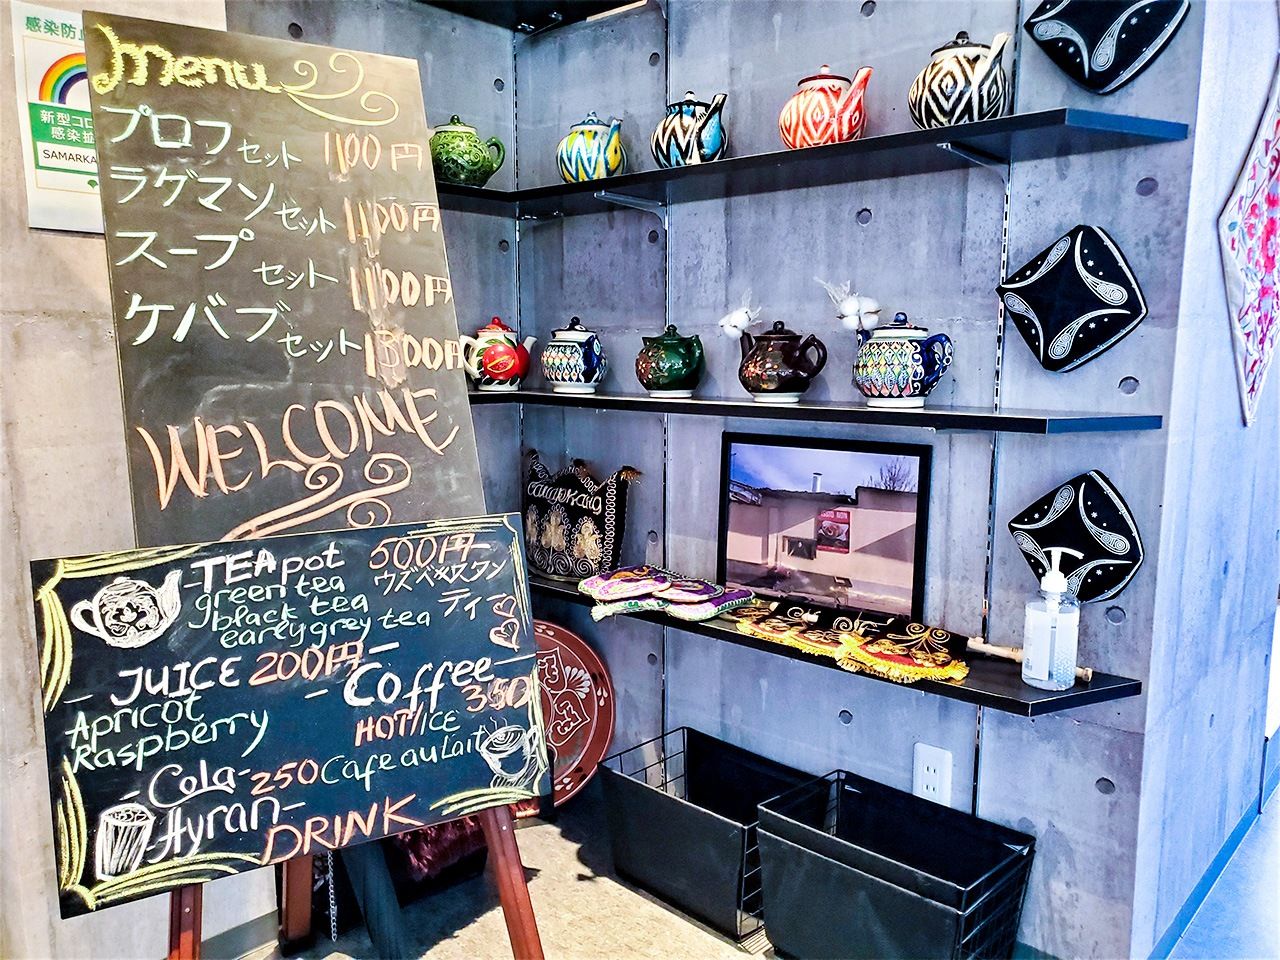 感染防止
新型コロ
感染拡
SAMARKA
Menu
プロフ セット 1100円
ラグマン セット 1100円
スープ セット 1100円
ケバブ セット 1300円
WELCOME
TEA pot 500円
green tea
black tea
earlygrey tea
ウズベキスタン
ティー
JUICE 200円
Apricot
Raspberry
Coffee 350
HOT/ICE
Cafe au Lait
Cola 250
Ayran
DRINK